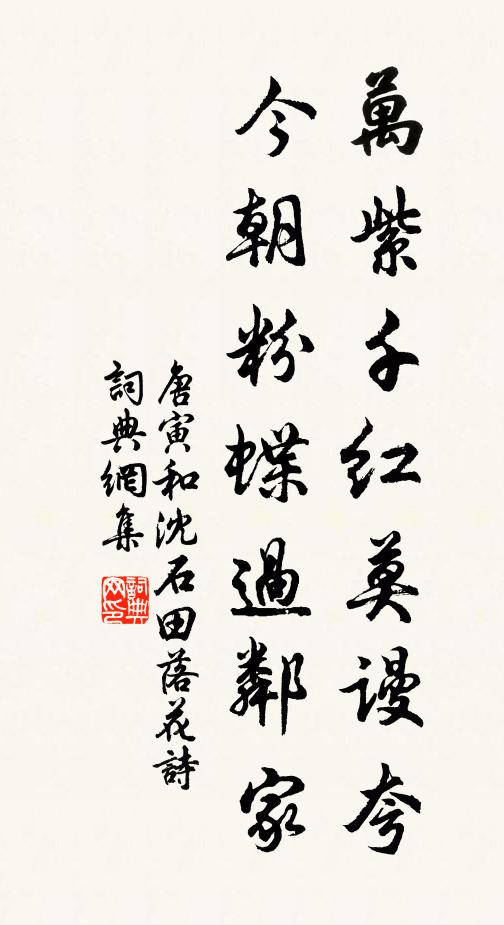 萬紫千紅莫謾夸
今朝粉蝶過鄰家
唐寅和沈石田落花詩
詞典網集
詞典